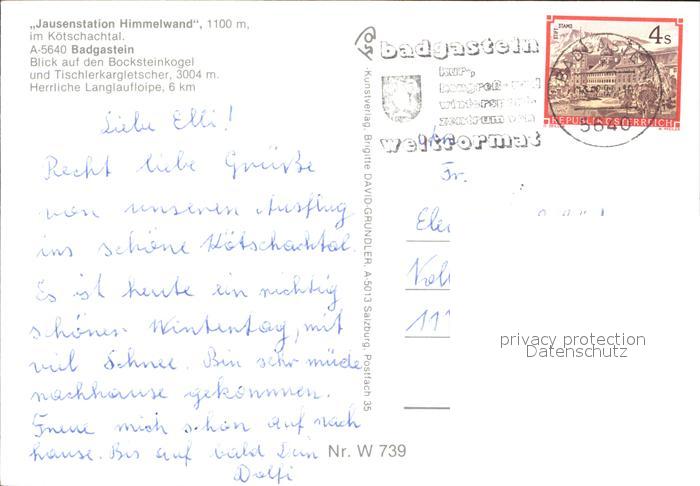 „Jausenstation Himmelwand“, 1100 m,
im Kötschachtal.
A-5640 Badgastein
Blick auf den Bocksteinkogel
und Tischlerkargletscher, 3004 m.
Herrliche Langlaufloipe, 6 km
Liebe Elli!
Recht liebe Grüße
von unseren Ausflug
ins schöne Kötschachtal.
Es ist heute ein richtig
schöner Wintertag, mit
viel Schnee. Bin sehr müde
nachhause gekommen.
Freue mich schon auf nach
hause. Bis auf bald Dein
Dolfi
Kunstverlag, Brigitte DAVID-GRÜNDLER, A-5013 Salzburg, Postfach 35
Nr. W 739
badgastein
kur-,
kongreß- und
wintersport-
zentrum von
weltformat
BADGASTEIN
5640
STIFT STAMS
4 S
REPUBLIK ÖSTERREICH
Fr.
111
privacy protection
Datenschutz